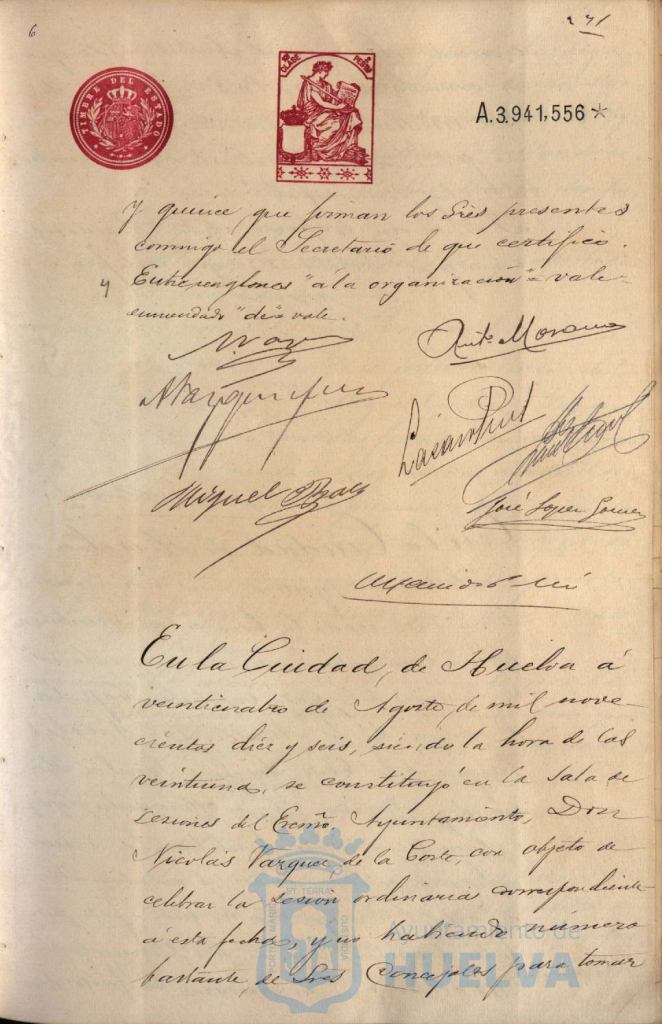 6
241
TIMBRE DEL ESTADO
CLASE
PESETA
A.3.941,556*
y quince que firman los Sres presentes
conmigo el Secretario de que certifico.
y Entrerenglones "á la organización" = vale =
enmendado "de" = vale.
Anto. Moreno
Miguel
José Lopez Gomez
En la Ciudad de Huelva á
veinticuatro de Agosto de mil nove-
cientos diez y seis, siendo la hora de las
veintiuna, se constituyó en la sala de
sesiones del Excmo. Ayuntamiento, Don
Nicolás Vazquez de la Corte, con objeto de
celebrar la sesion ordinaria correspondiente
á esta fecha, y no habiendo número
bastante de Sres Concejales para tomar
Ayuntamiento de
HUELVA